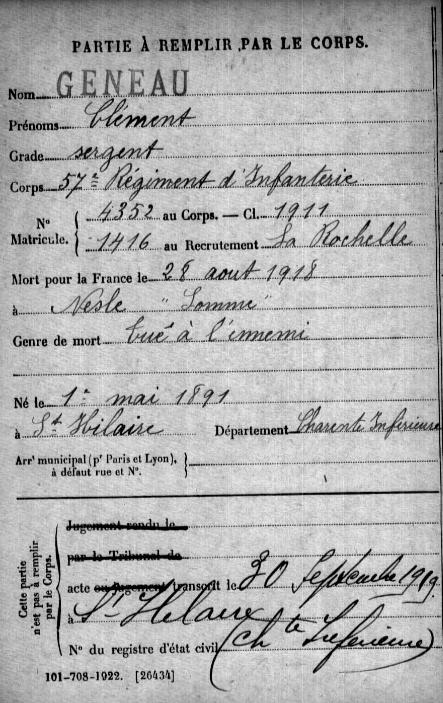 PARTIE À REMPLIR PAR LE CORPS.
Nom GENEAU
Prénoms Clément
Grade sergent
Corps 57e Régiment d'Infanterie
N° Matricule. { 4352 au Corps. — Cl. 1911
1416 au Recrutement La Rochelle
Mort pour la France le 28 aout 1918
à Nesle "Somme"
Genre de mort tué à l'ennemi
Né le 1er mai 1891
à St Hilaire Département Charente Inférieure
Arrt municipal (pr Paris et Lyon), à défaut rue et N°.
Cette partie n'est pas à remplir par le Corps.
Jugement rendu le
par le Tribunal de
acte ou jugement transcrit le 30 Septembre 1919
à St Hilaire
(Chte Inferieure)
N° du registre d'état civil
101-708-1922. [26434]